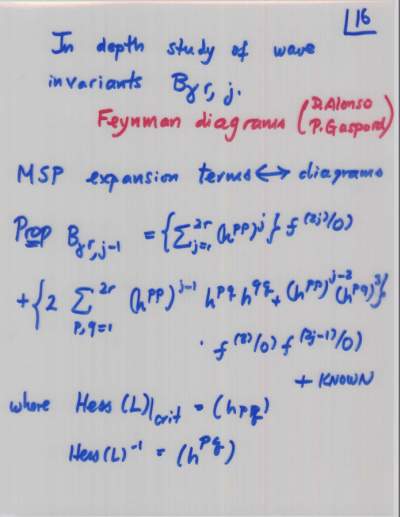 16
In depth study of wave
invariants B_{γ^r, j}.
Feynman diagrams (D. Alonso
P. Gaspard)
MSP expansion terms ↔ diagrams
Prop B_{γ^r, j-1} = {∑_{j=1}^{2r} (h^{pp})^j} f^{(2j)}(0)
+ {2 ∑_{p,q=1}^{2r} (h^{pp})^{j-1} h^{pq} h^{qq} + (h^{pp})^{j-2} (h^{pq})^3}
· f^{(3)}(0) f^{(2j-1)}(0)
+ KNOWN
where Hess(L)|_{crit} = (h_{pq})
Hess(L)^{-1} = (h^{pq})